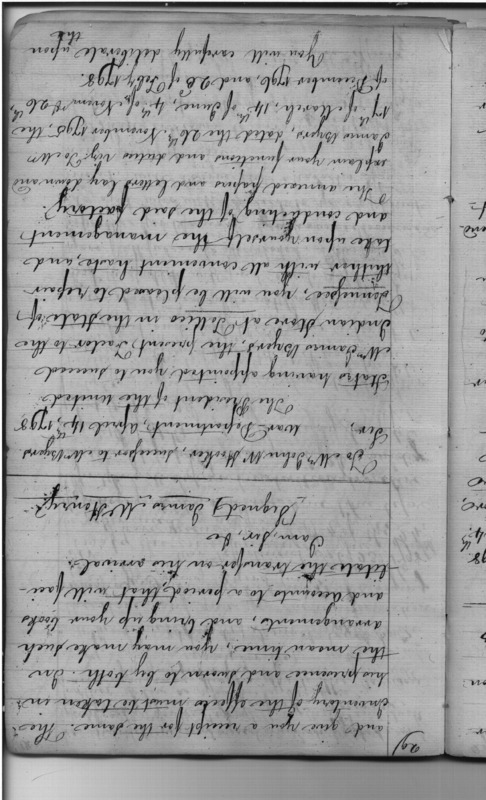 29)
and give you a receipt for the same. The
Inventory of the effects must be taken in
his presence and sworn to by both. In
the mean time, you may make such
arrangements, and bring up your books
and accounts to a period, that will faci-
litate the transfer on his arrival.
I am, Sir, &c
(Signed) James McHenry.
To Mr John W Hooker, successor to Mr Byers
War Department, April 14th, 1798
Sir,
The President of the United
States having appointed you to succeed
Mr James Byers, the present Factor to the
Indian Store at Tellico in the State of
Tennessee, you will be pleased to repair
thither with all convenient haste, and
take upon yourself the management
and conducting of the said factory.
The annexed papers and letters lay down and
explain your functions and duties viz. To Mr
James Byers, dated the 26th November 1795, the
17th of March, 14th of June, 4th of Novem &
of December 1796, and 28 of Feby 1798.
You will carefully deliberate upon